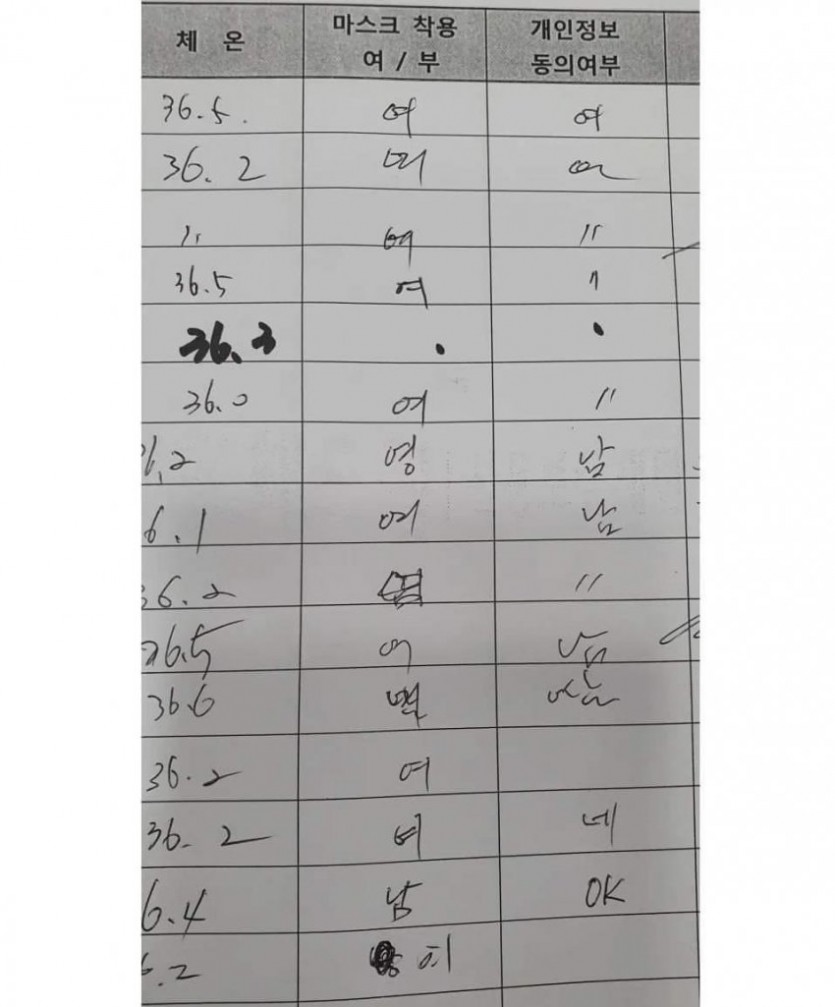 체 온 마스크 착용 여 / 부 개인정보 동의여부
36.5. 여 여
36.2 여
〃 여 〃
36.5 여 〃
36.3 . .
36.0 여 〃
6.2 영 남
6.1 여 남
36.2 〃
36.5 여 남
36.6 남
36.2 여
36.2 여 네
6.4 남 OK
6.2